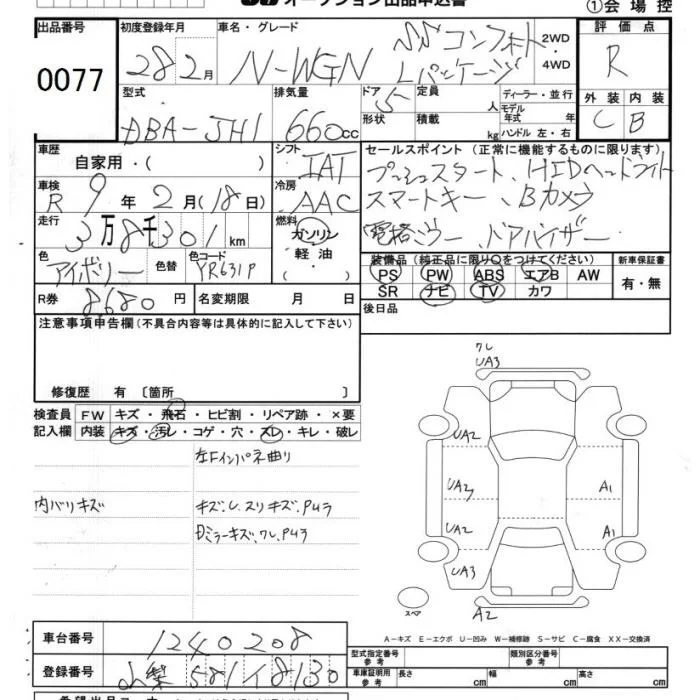 オークション出品申込書
①会場控
出品番号
0077
初度登録年月
28 2月
車名・グレード
N-WGN SSコンフォート Lパッケージ
2WD
・
4WD
評価点
R
外装 内装
C B
型式
DBA-JH1
排気量
660cc
ドア 5
形状
定員 人
積載 kg
ディーラー・並行
モデル年式 年
ハンドル 左・右
車歴
自家用・( )
シフト
IAT
セールスポイント (正常に機能するものに限ります)
プッシュスタート、HIDヘッドライト
スマートキー、Bカメラ
電格ミラー ドアバイザー
車検
R 9年 2月(18日)
冷房
AAC
走行
3万8千301km
燃料
ガソリン
軽油
・( )
色
アイボリー
色替
色コード
YR631P
装備品 (純正品に限り○をつけてください)
PS PW ABS エアB AW
SR ナビ TV カワ
新車保証書
有・無
R券 8680円
名変期限 月 日
後日品
注意事項申告欄(不具合内容等は具体的に記入して下さい)
修復歴 有 〔箇所 〕
検査員 FW キズ・飛石・ヒビ割・リペア跡・×要
記入欄 内装 キズ・汚レ・コゲ・穴・スレ・キレ・破レ
左Fインパネ曲り
内バリキズ
キズ、U、スリキズ、PUラ
Dミラーキズ、ワレ、PUラ
ワレ
UA3
UA2
UA3
A1
UA2
A1
UA3
スペア
A2
A-キズ E-エクボ U-凹み W-補修跡 S-サビ C-腐食 XX-交換済
車台番号
1240208
登録番号
山梨 581 イ 8130
型式指定番号 参考
類別区分番号 参考
車庫証明用 参考
長さ cm
幅 cm
高さ cm